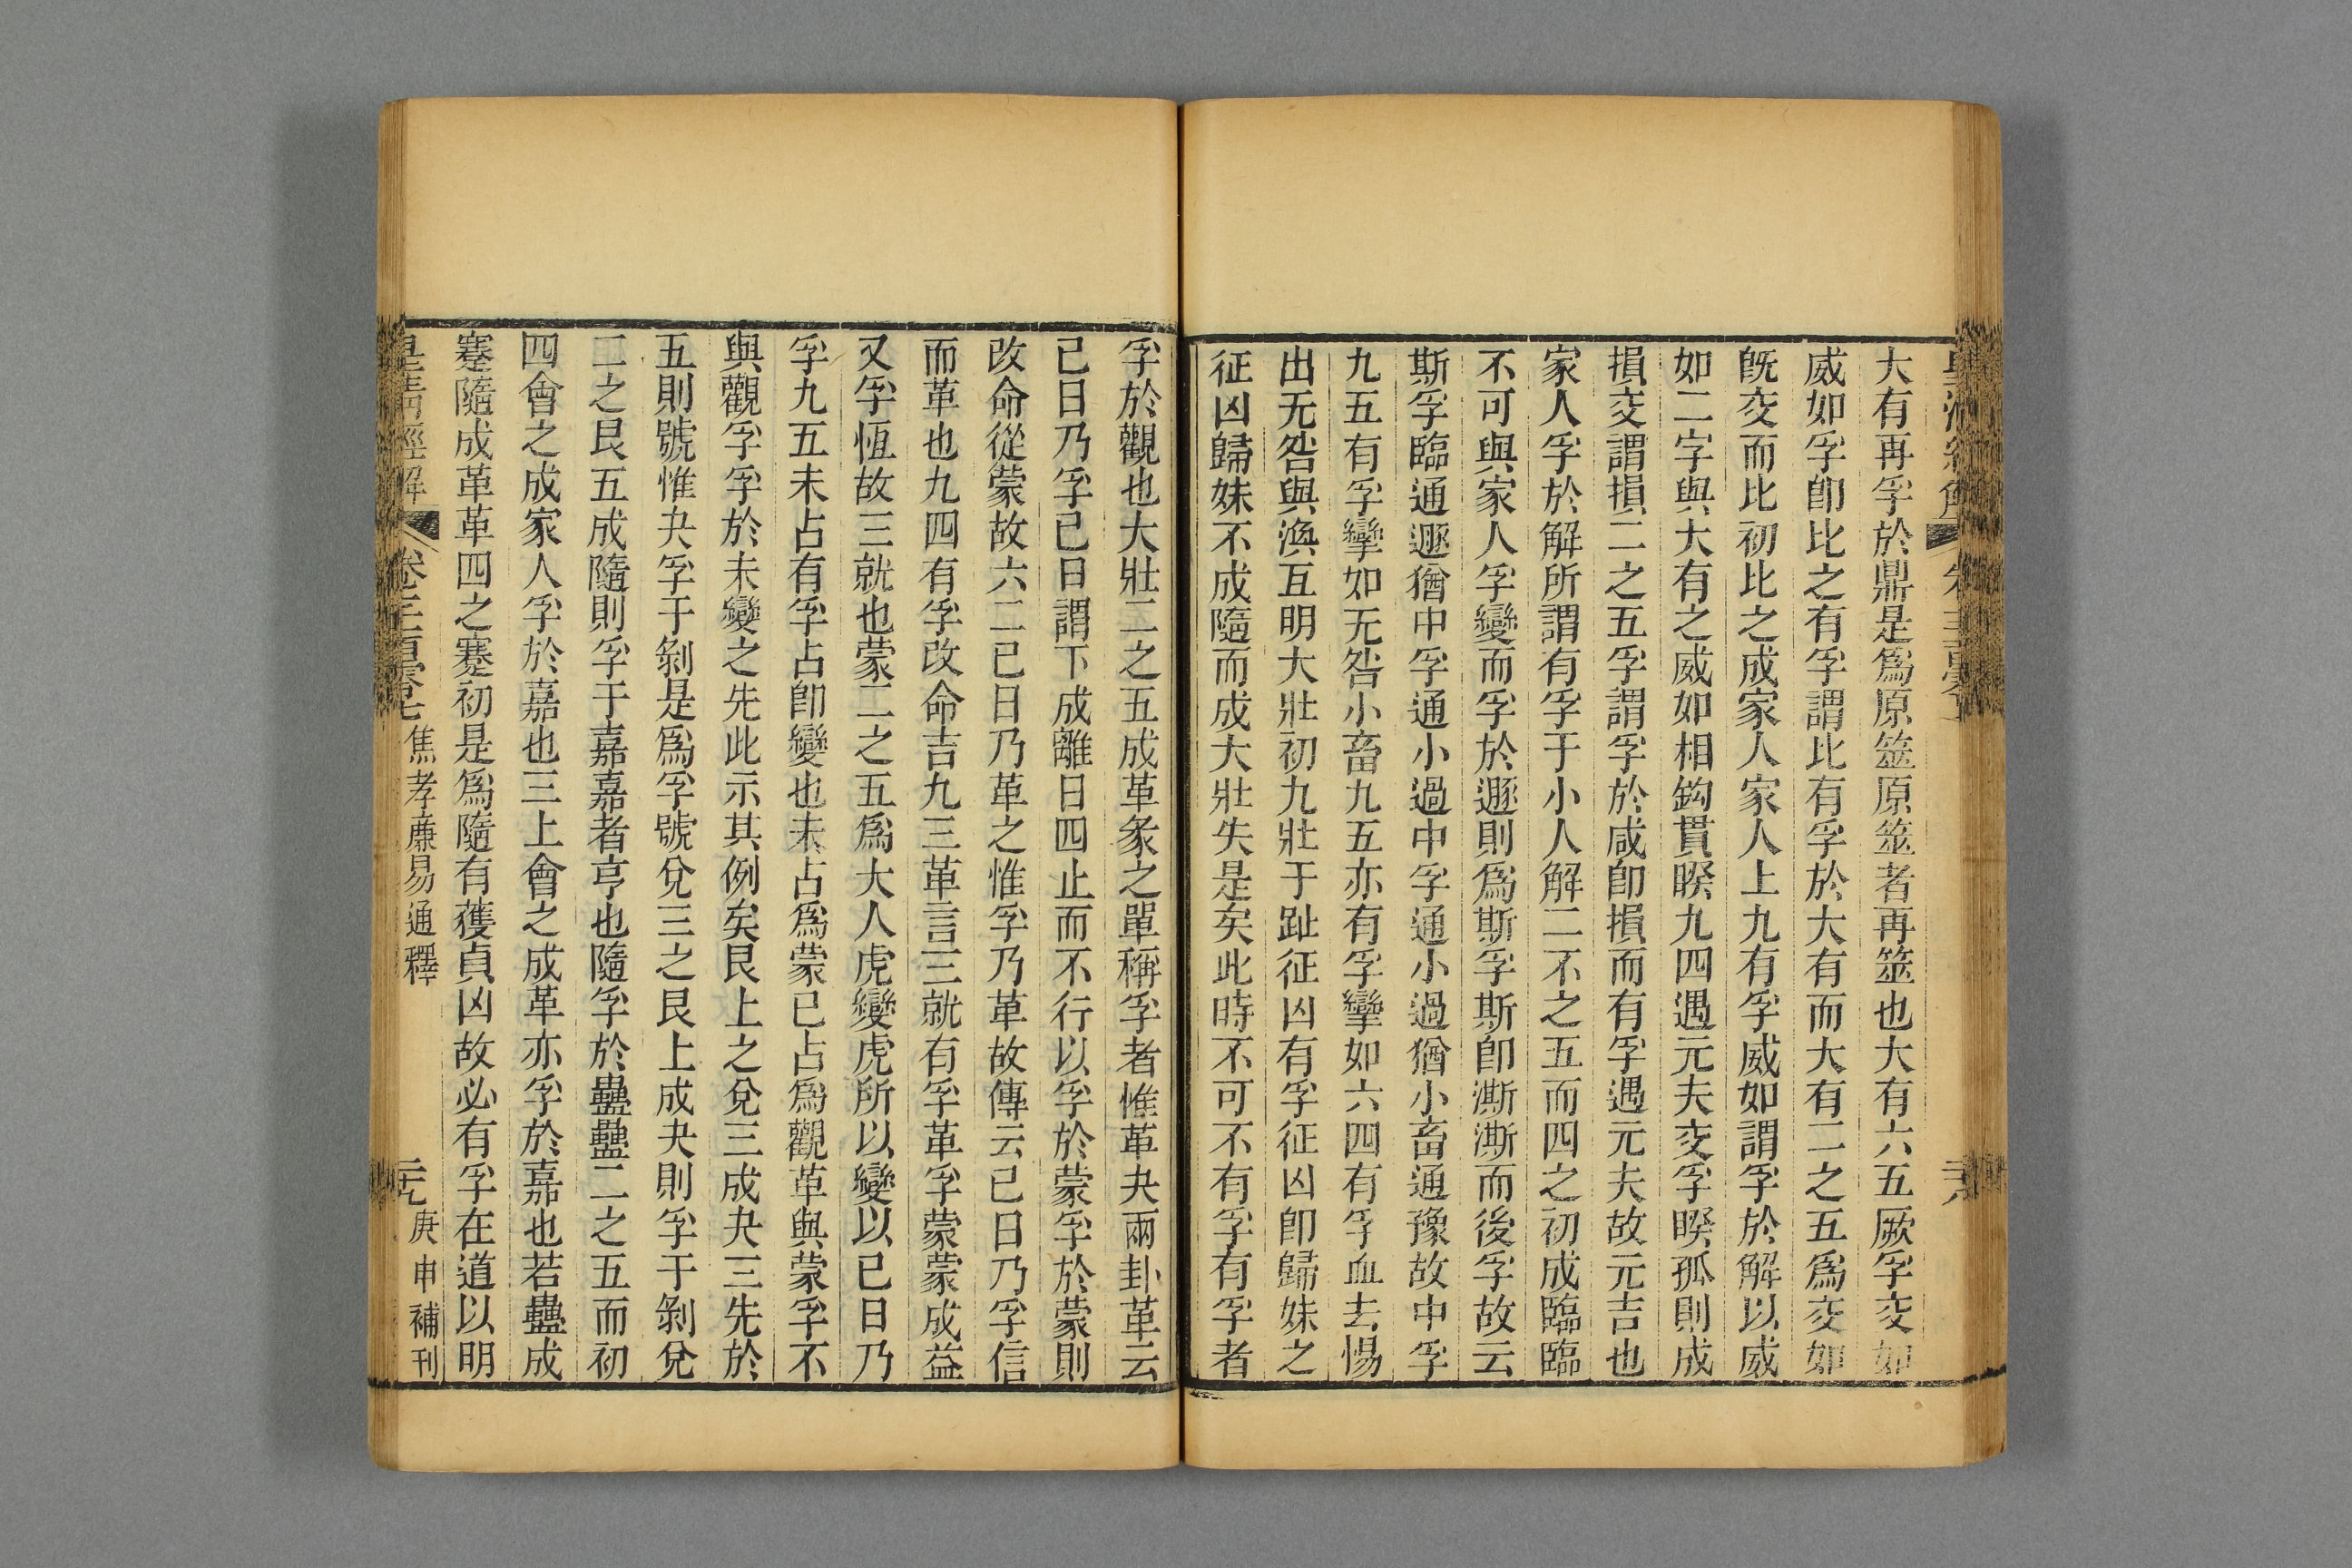 大有再孚於鼎是爲原筮原筮者再筮也大有六五厥孚交如
威如孚卽比之有孚謂比有孚於大有而大有二之五爲交如
旣交而比初比之成家人家人上九有孚威如謂孚於解以威
如二字與大有之威如相鈎貫睽九四遇元夫交孚睽孤則成
損交謂損二之五孚謂孚於咸卽損而有孚遇元夫故元吉也
家人孚於解所謂有孚于小人解二不之五而四之初成臨臨
不可與家人孚變而孚於遯則爲斯孚斯卽澌澌而後孚故云
斯孚臨通遯猶中孚通小過中孚通小過猶小畜通豫故中孚
九五有孚攣如无咎小畜九五亦有孚攣如六四有孚血去惕
出无咎與渙互明大壯初九壯于趾征凶有孚征凶卽歸妹之
征凶歸妹不成隨而成大壯失是矣此時不可不有孚有孚者
孚於觀也大壯二之五成革彖之單稱孚者惟革夬兩卦革云
已日乃孚已日謂下成離日四止而不行以孚於蒙孚於蒙則
改命從蒙故六二已日乃革之惟孚乃革故傳云已日乃孚信
而革也九四有孚改命吉九三革言三就有孚革孚蒙蒙成益
又孚恆故三就也蒙二之五爲大人虎變虎所以變以已日乃
孚九五未占有孚占卽變也未占爲蒙已占爲觀革與蒙孚不
與觀孚孚於未變之先此示其例矣艮上之兌三成夬三先於
五則號惟夬孚于剝是爲孚號兌三之艮上成夬則孚于剝兌
二之艮五成隨則孚于嘉嘉者亨也隨孚於蠱蠱二之五而初
四會之成家人孚於嘉也三上會之成革亦孚於嘉也若蠱成
蹇隨成革革四之蹇初是爲隨有獲貞凶故必有孚在道以明
皇清經解 卷三一百零七 焦孝廉易通釋 元 庚申補刊